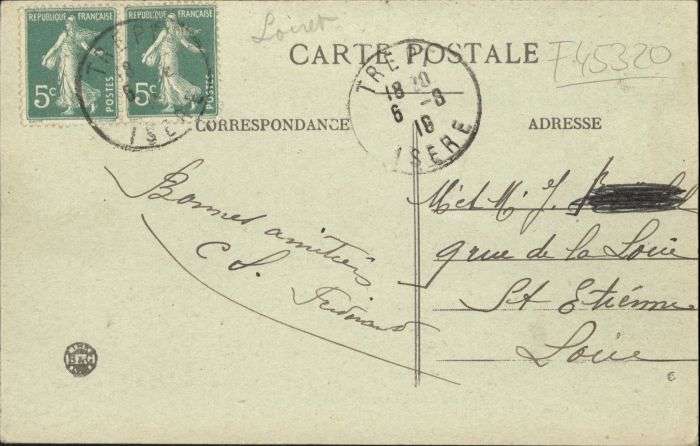 REPUBLIQUE FRANÇAISE
5c
POSTES
REPUBLIQUE FRANÇAISE
5c
POSTES
TREPT
18
6
ISÈRE
Loiret
CARTE POSTALE
F45320
TREPT
18 30
6 -8
18
ISÈRE
CORRESPONDANCE
ADRESSE
Bonnes amitiés
C S. Ferdinand
M et M. J.
9 rue de la Loire
St Etienne
Loire
B&G